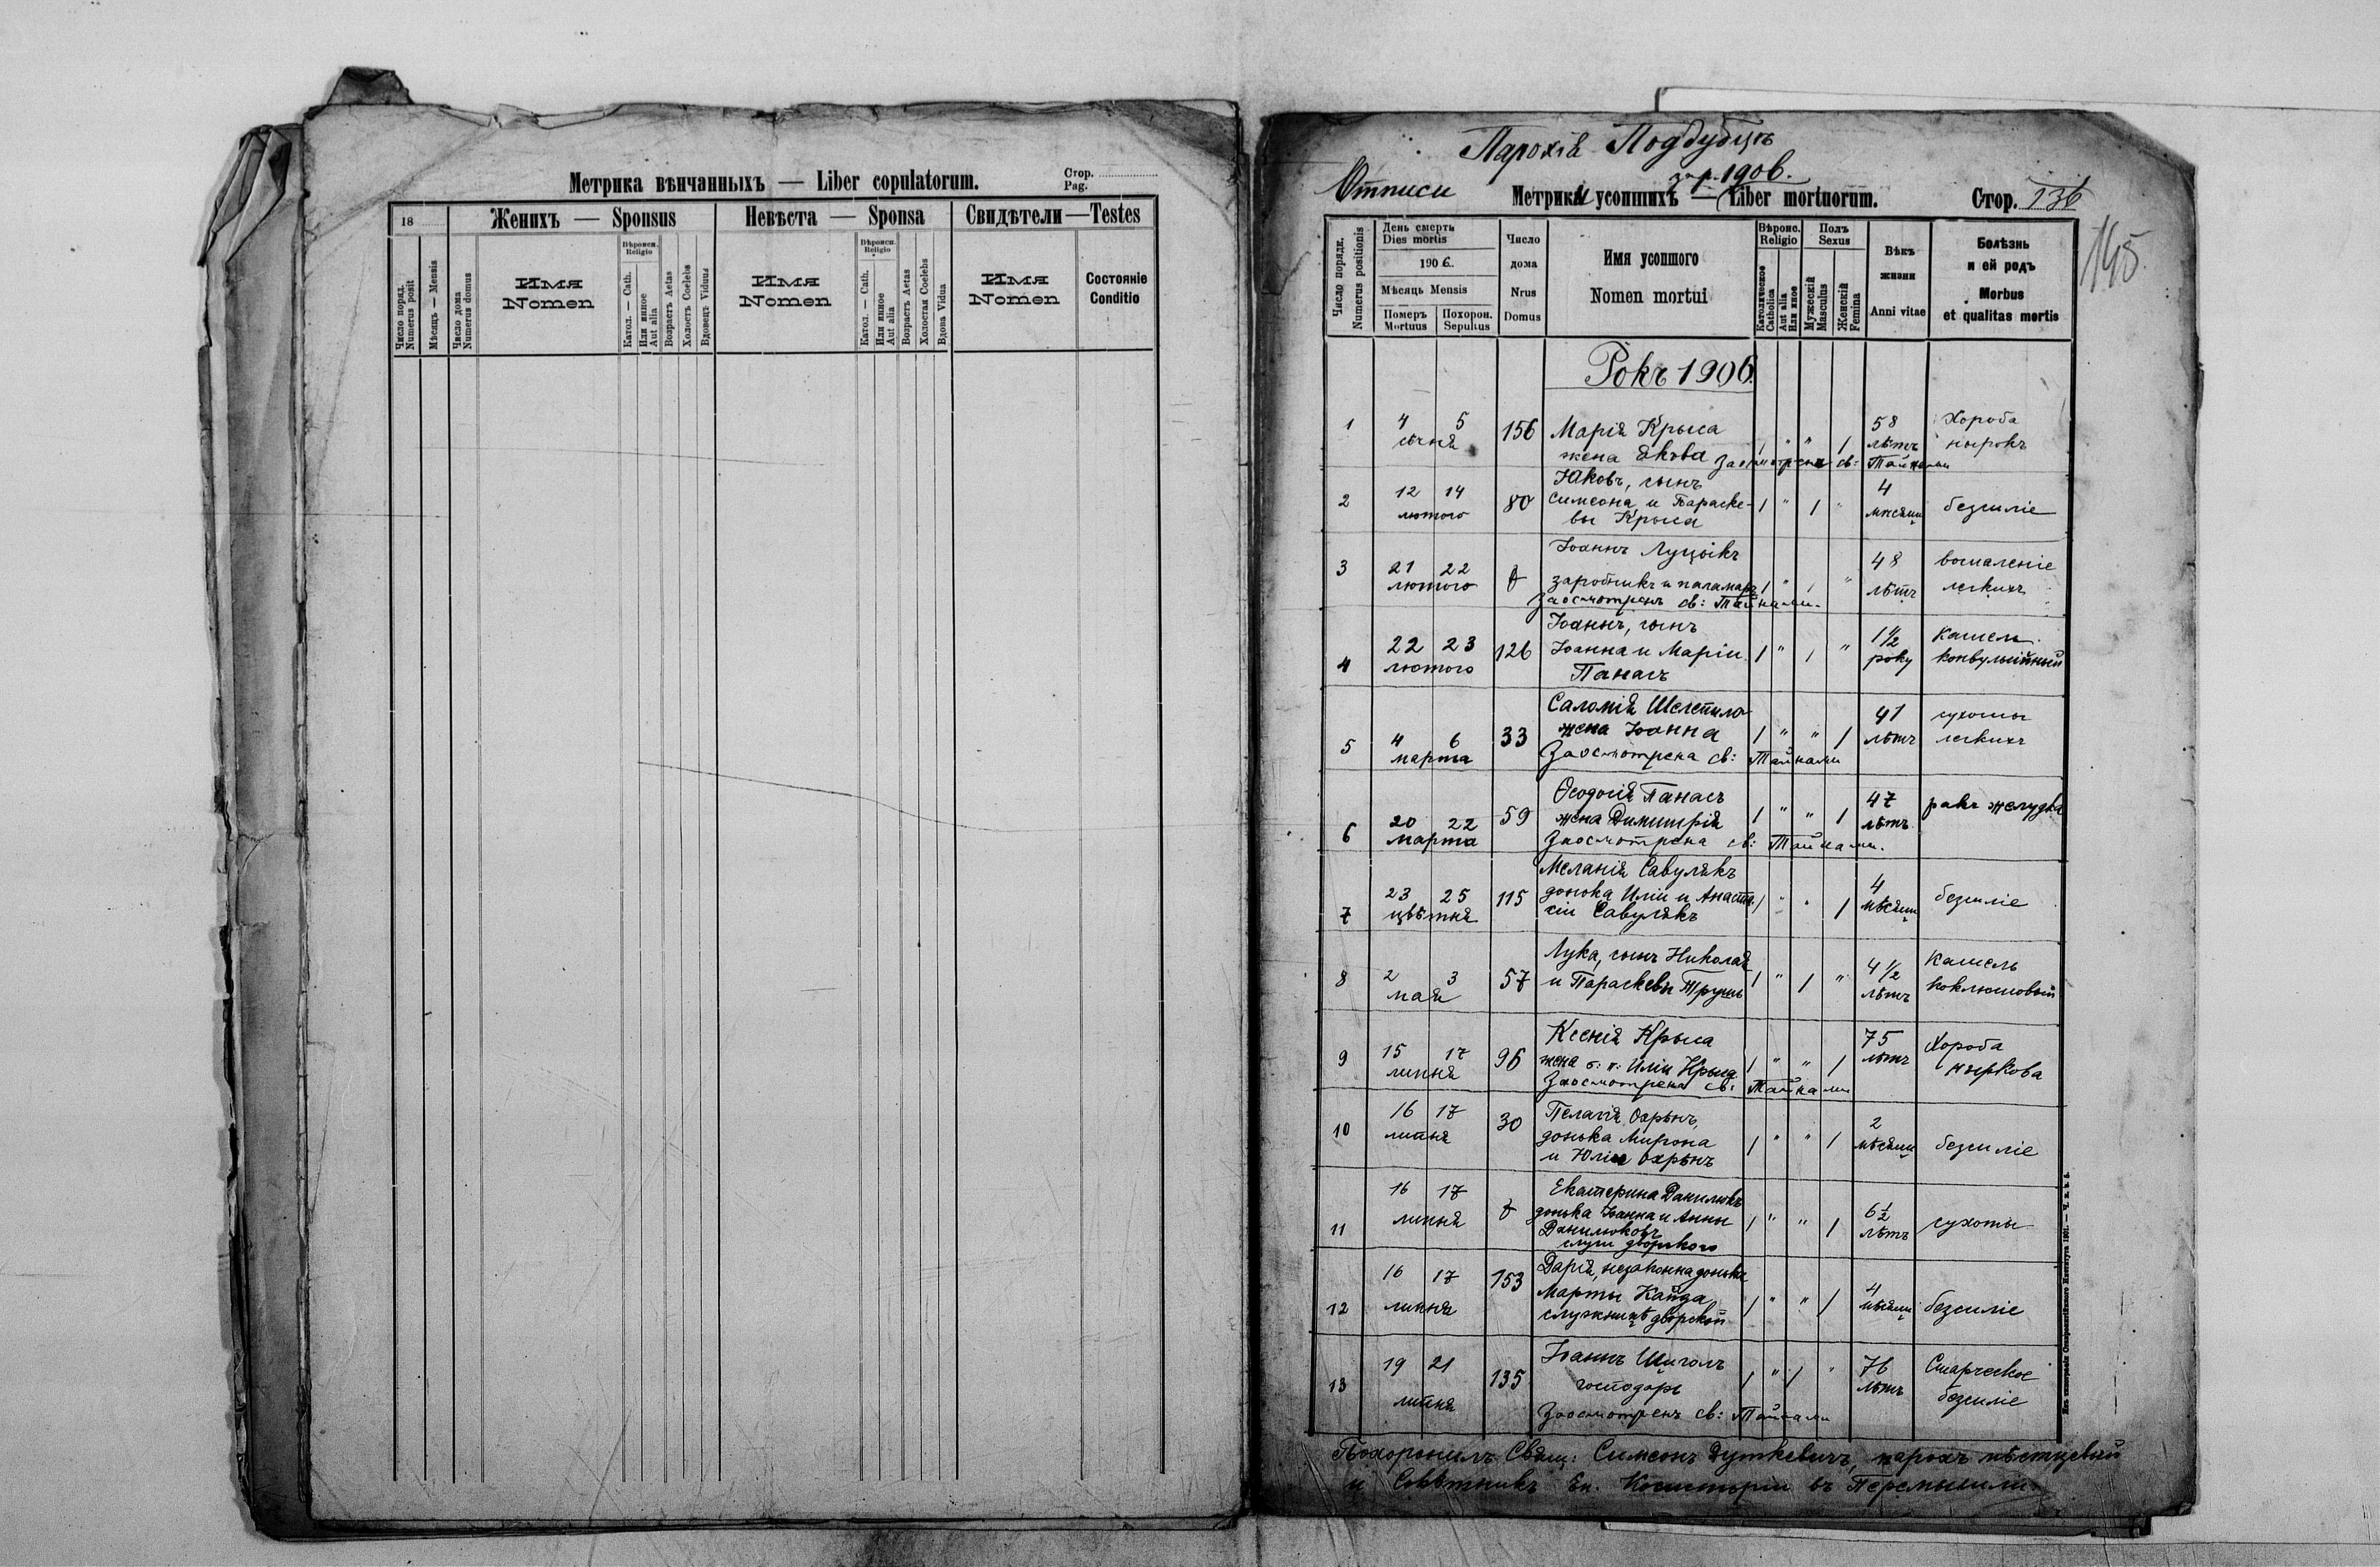 Метрика вѣнчанныхъ — Liber copulatorum.
Стор.
Pag.
18
Женихъ — Sponsus
Невѣста — Sponsa
Свидѣтели — Testes
Число поряд.
Numerus posit
Мѣсяцъ — Mensis
Число дома
Numerus domus
Имя
Nomen
Вѣроисп.
Religio
Катол. — Cath.
Или инное
Aut alia
Возрастъ Aetas
Холостъ Coelebs
Вдовецъ Viduus
Имя
Nomen
Вѣроисп.
Religio
Катол. — Cath.
Или инное
Aut alia
Возрастъ Aetas
Холостая Coelebs
Вдова Vidua
Имя
Nomen
Состоянie
Conditio
Парохія Подбубцѣ
зар. 1906.
Отписи
Метрики усопшихъ — Liber mortuorum.
Стор. 136
145
Число порядк.
Numerus positionis
День смерть
Dies mortis
1906.
Мѣсяцъ Mensis
Померъ
Mortuus
Похорон.
Sepultus
Число
дома
Nrus
Domus
Имя усопшого
Nomen mortui
Вѣроис.
Religio
Католическое
Catholica
Aut alia
Или иное
Полъ
Sexus
Мужескій
Masculus
Женскій
Femina
Вѣкъ
жизни
Anni vitae
Болѣзнь
и ей родъ
Morbus
et qualitas mortis
Рокъ 1906.
1 4 5 156 Марія Крыса 1 " " 1 58 Хороба
сѣчня жена Якова лѣтъ нырокъ
Заосмотрена св: Тайнами
2 12 14 80 Яковъ, сынъ 1 " 1 " 4 безсиліе
лютого Симеона и Параске- мѣсяци
вы Крыса
3 21 22 Іоаннъ Луцикъ 1 " 1 " 48 воспаленіе
лютого заробникъ и паламаръ лѣтъ легкихъ
Заосмотренъ св: Тайнами.
4 22 23 126 Іоаннъ, сынъ 1 " 1 " 1½ Кашель
лютого Іоанна и Маріи року конвульсійный
Панасъ
5 4 6 33 Саломія Шелепило 1 " " 1 41 сухоты
марта жена Іоанна лѣтъ легкихъ
Заосмотрена св: Тайнами
6 20 22 59 Ѳеодосія Панасъ 1 " " 1 47 ракъ желудка
марта жена Димитрія лѣтъ
Заосмотрена св: Тайнами.
7 23 25 115 Меланія Савулякъ 1 " " 1 4 безсиліе
цвѣтня донька Иліи и Анаста- мѣсяци
сіи Савулякъ
8 2 3 57 Лука, сынъ Николая 1 " 1 " 4½ Кашель
мая и Параскевы Трушъ лѣтъ коклюшовый
9 15 17 96 Ксенія Крыса 1 " " 1 75 Хороба
липня жена б: п: Иліи Крыса лѣтъ ныркова
Заосмотрена св: Тайнами
10 16 17 30 Пелагія Охрынъ, 1 " " 1 2 безсиліе
липня донька Мирона мѣсяци
и Юліи Охрынъ
11 16 17 Екатерина Данилюкъ 1 " " 1 6½ сухоты
липня донька Іоанна и Анны лѣтъ
Данилюковъ
слуги дворского
12 16 17 153 Дарія, незаконна донька 1 " " 1 4 безсиліе
липня Марты Кайда мѣсяци
служницѣ дворской
13 19 21 135 Іоаннъ Щиголъ 1 " 1 " 76 Старческое
липня господарь лѣтъ безсиліе
Заосмотренъ св: Тайнами
Похоронилъ Свящ: Симеонъ Дуткевичъ, парохъ мѣстцевый
и Совѣтникъ Еп. Консисторіи въ Перемышли.